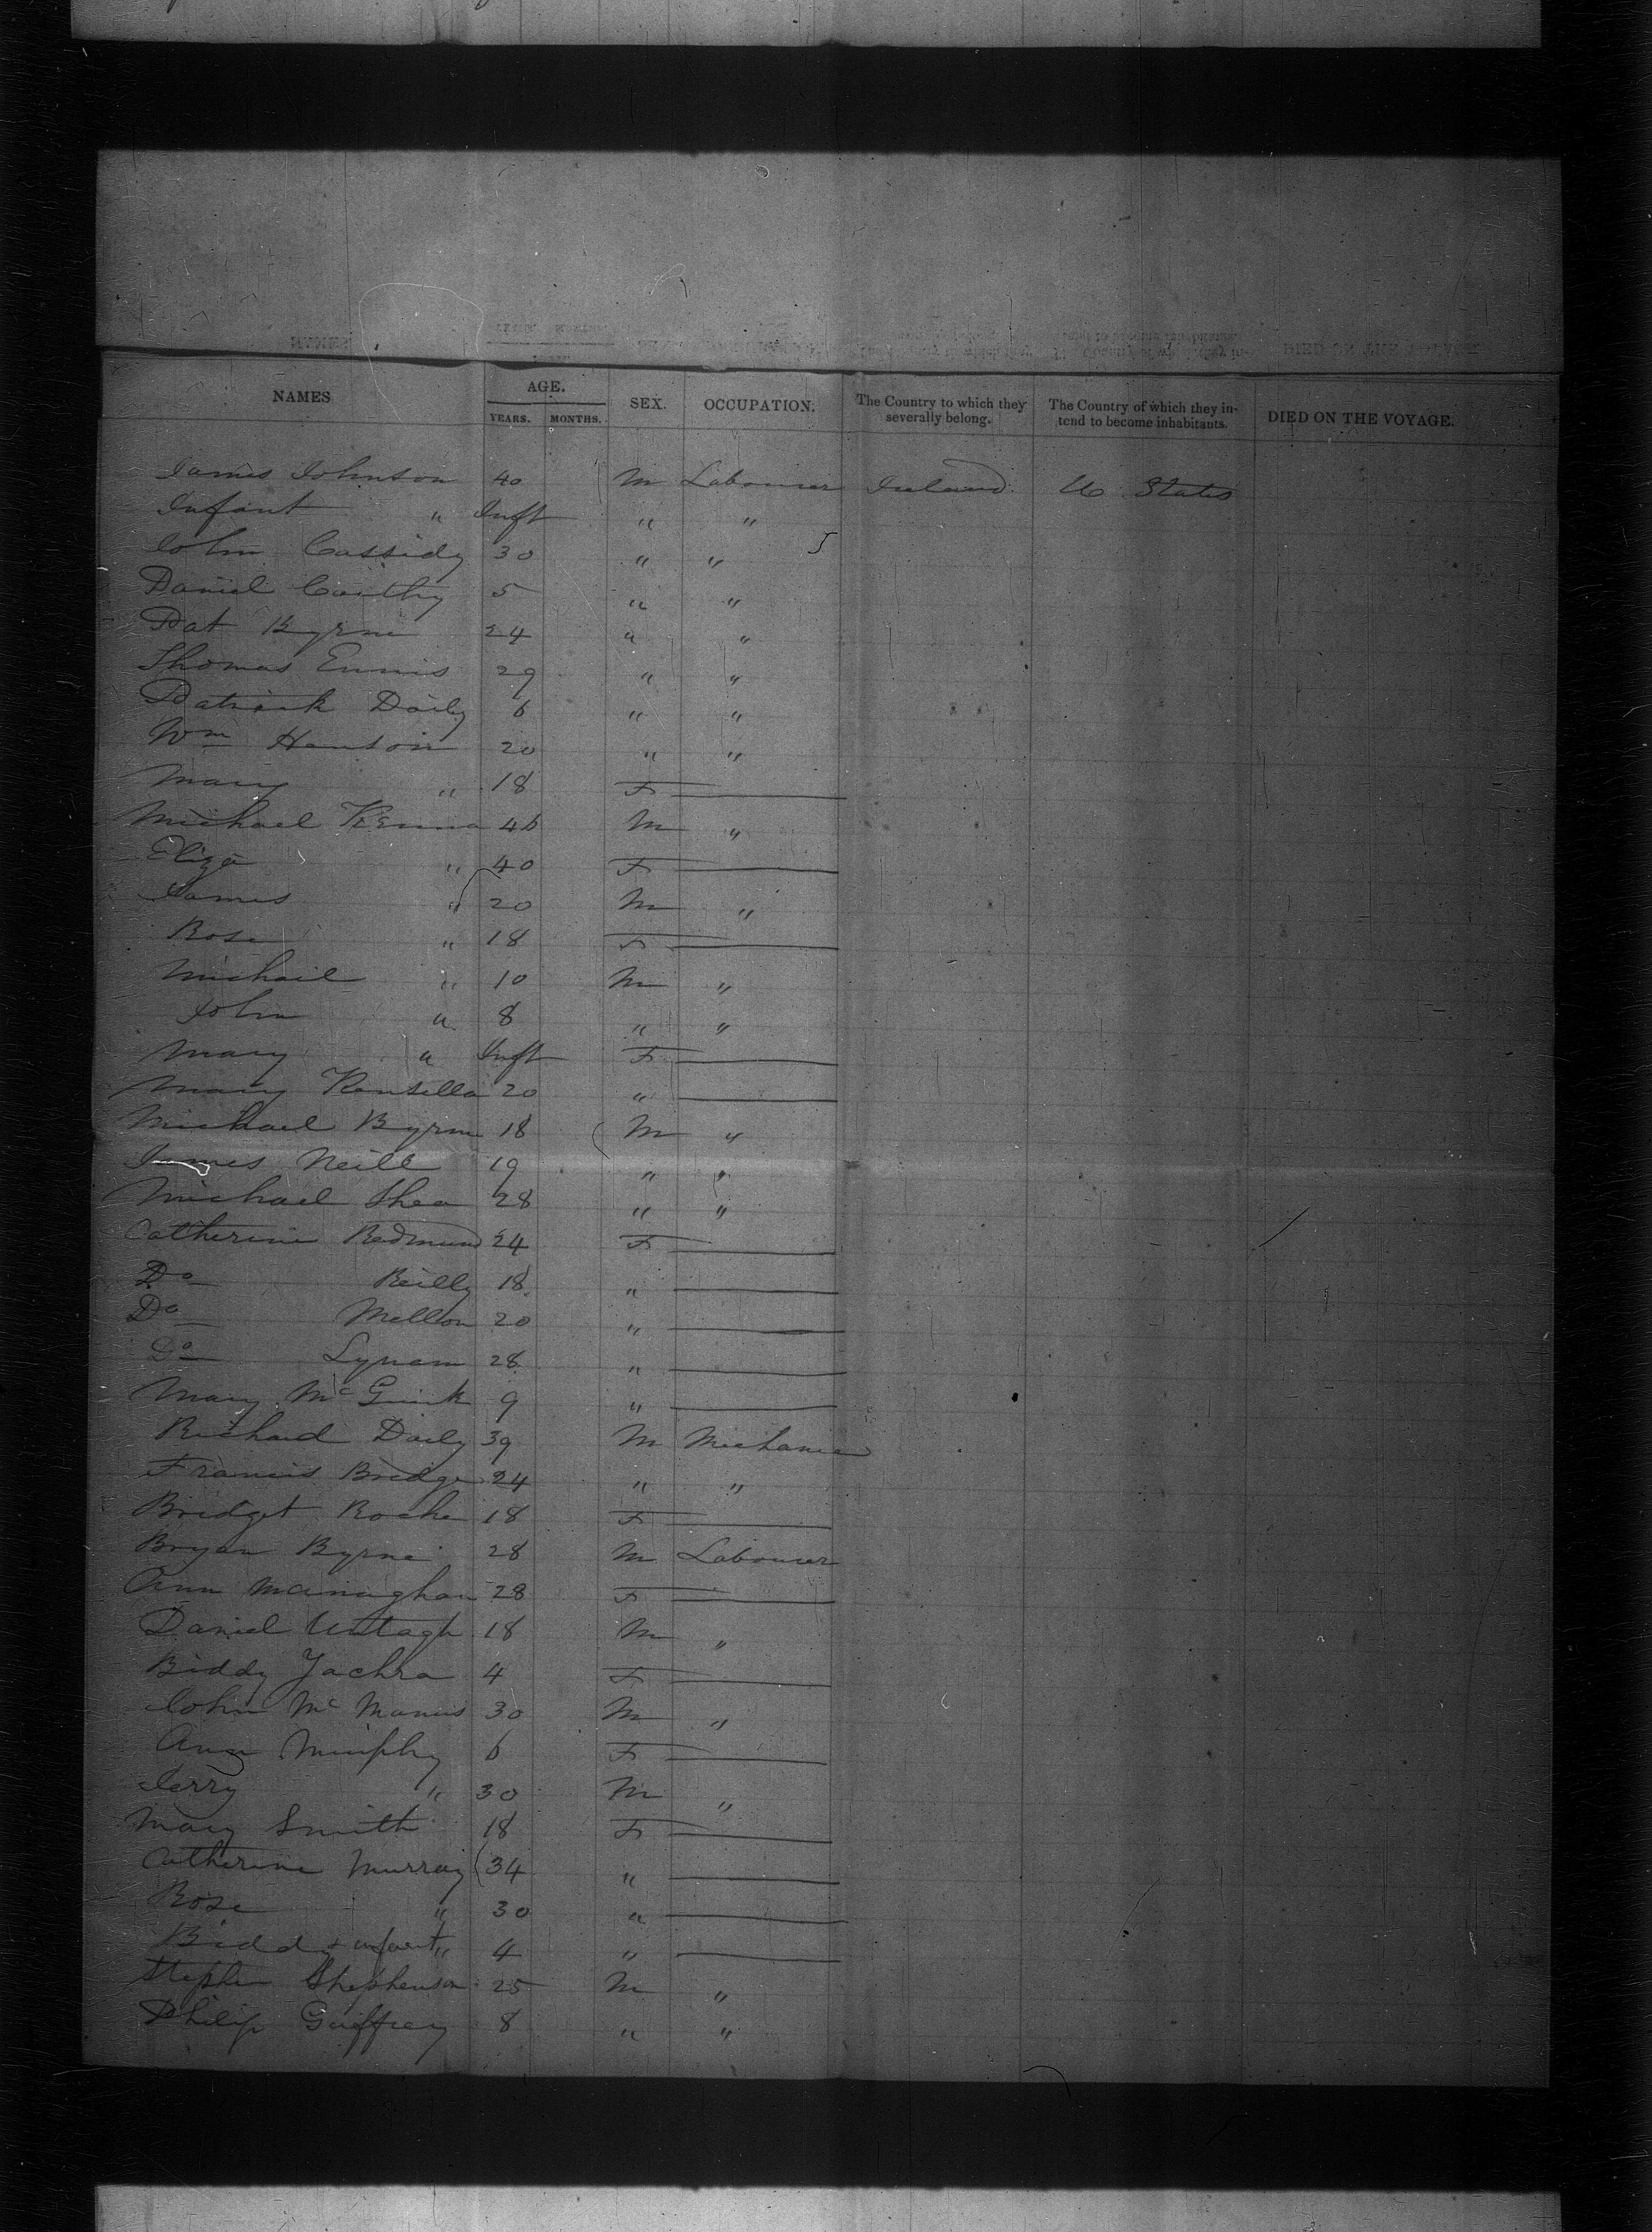 NAMES AGE. YEARS. MONTHS. SEX. OCCUPATION. The Country to which they severally belong. The Country of which they intend to become inhabitants. DIED ON THE VOYAGE.
James Johnson 40 M Labourer Ireland U States
Infant " Inft " "
John Cassidy 30 " "
Daniel 5 " "
Pat Byrne 24 " "
Thomas Ennis 29 " "
Patrick Daily 6 " "
Wm 20 " "
Mary " 18 F
Michael Kenna 46 M "
Eliza " 40 F
James " 20 M "
Rose " 18 F
Michail " 10 M "
John " 8 " "
Mary " Inft F
Mary Kensella 20 "
Michael Byrne 18 M "
James Neill 19 " "
Michael Shea 28 " "
Catherine Redmund 24 F
Do Reilly 18 "
Do Mellon 20 "
Do Lynam 28 "
Mary 9 "
Richard Daily 39 M Mechanic
Francis Bridge 24 " "
Bridget Roche 18 F
Bryan Byrne 28 M Labourer
Ann Managhan 28 F
Daniel 18 M "
Biddy 4 F
John McManus 30 M "
Ann Murphy 6 F
Jerry " 30 M "
Mary Smith 18 F
Catherine Murray 34 "
Rose " 30 "
Biddy & infant " 4 "
Stephen Stephenson 25 M "
Philip 8 " "